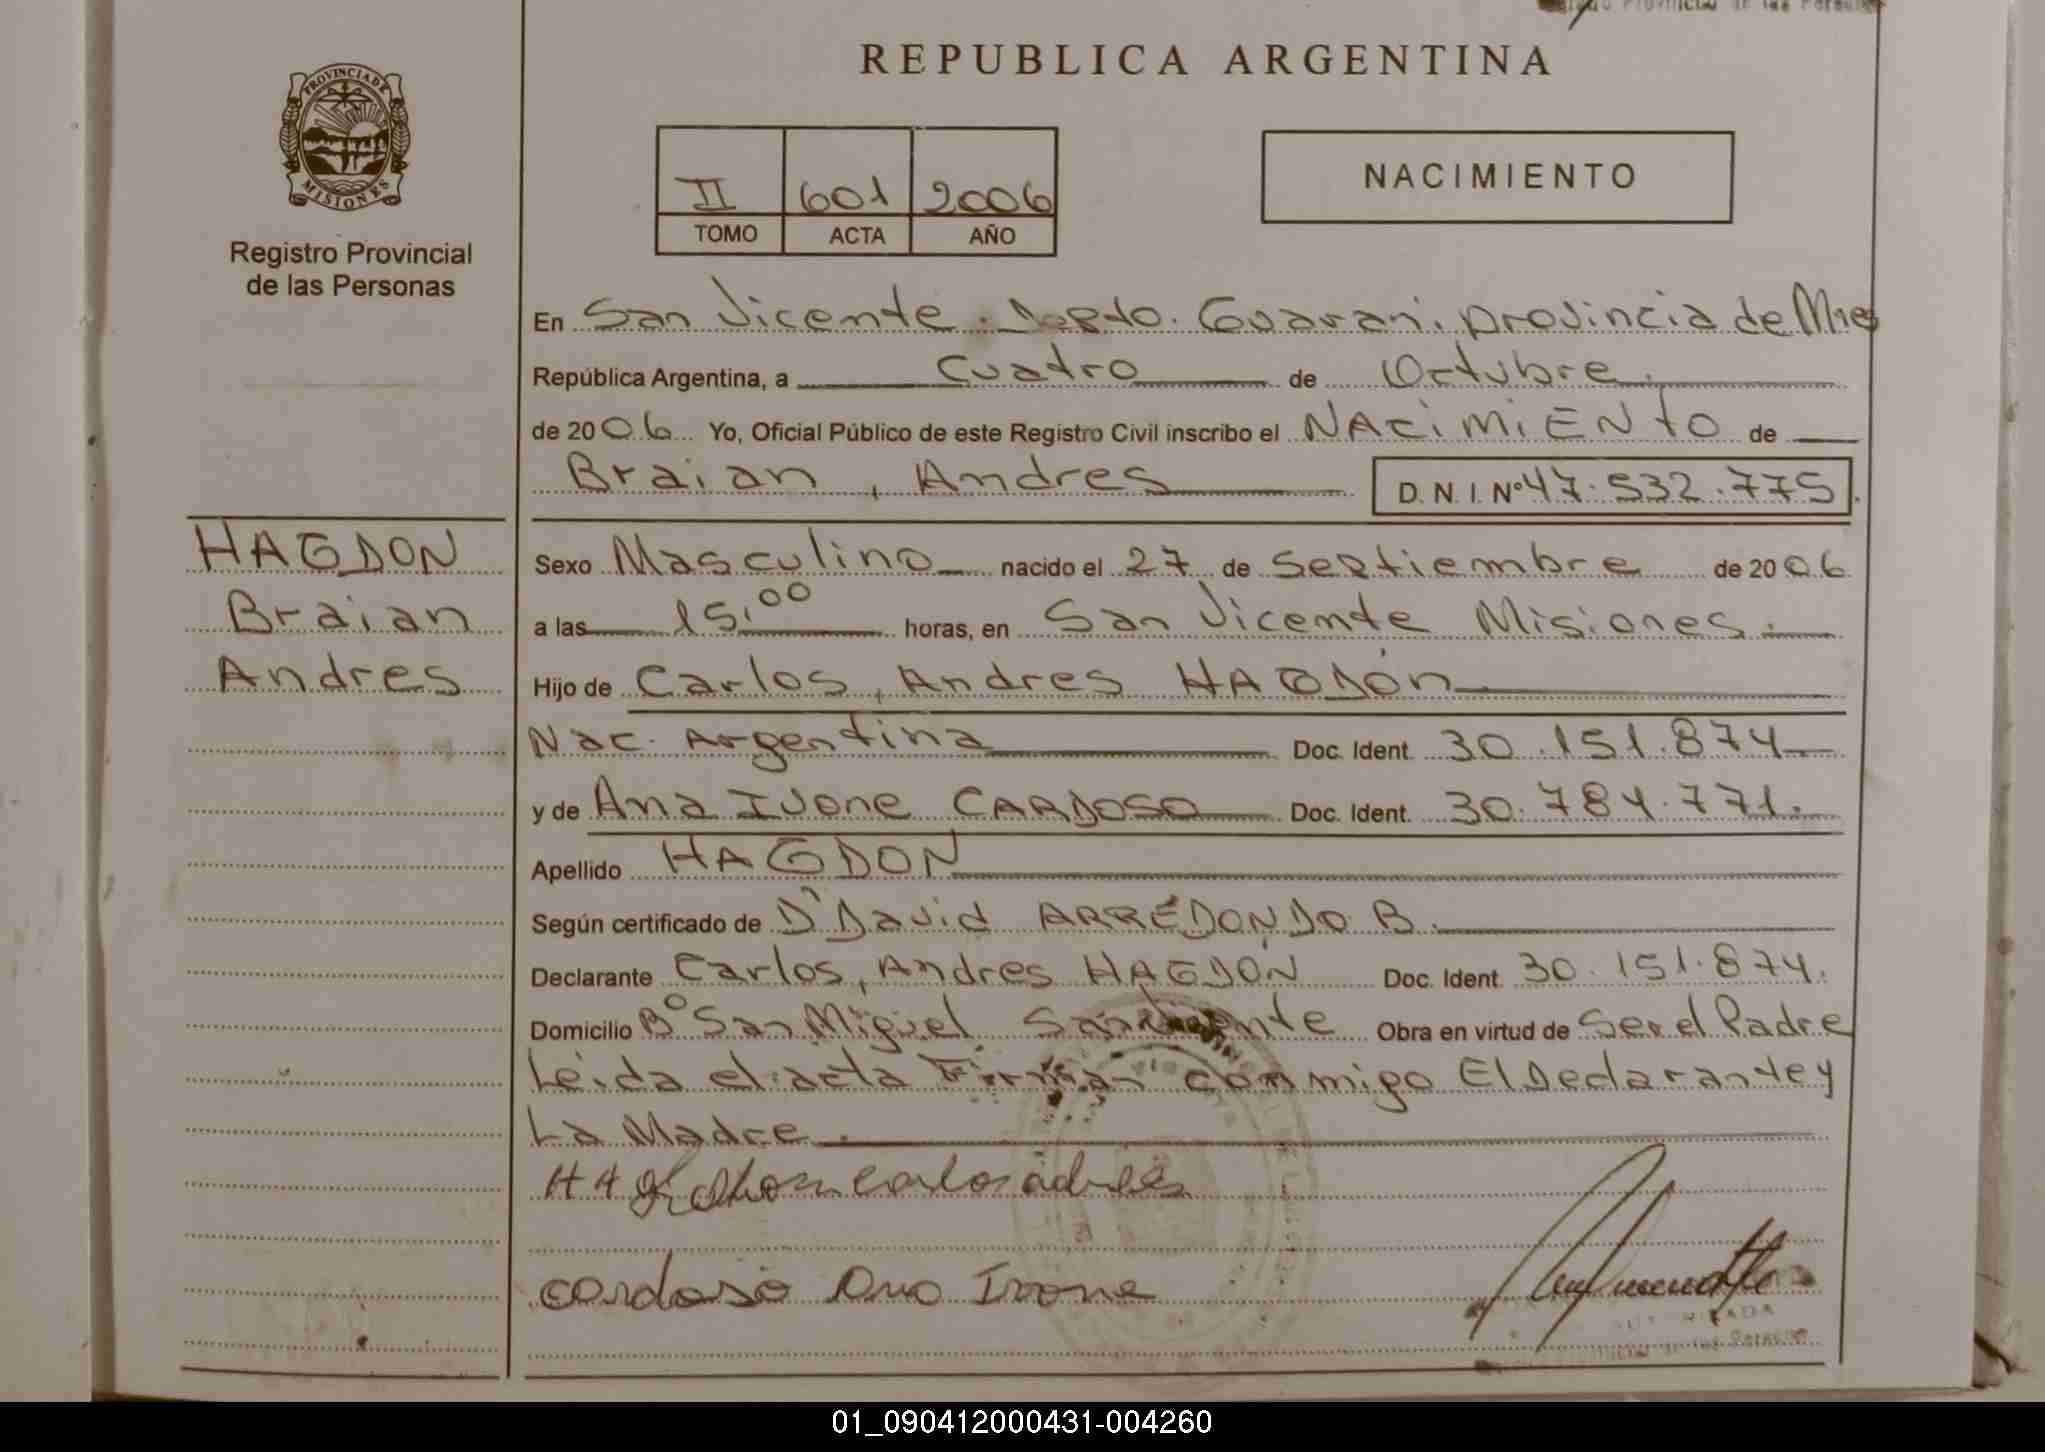 REPUBLICA ARGENTINA
PROVINCIA DE
MISIONES
Registro Provincial
de las Personas
II 601 2006
TOMO ACTA AÑO
NACIMIENTO
En San Vicente. Depto. Guarani. provincia de Mnes
República Argentina, a Cuatro de Octubre.
de 2006 Yo, Oficial Público de este Registro Civil inscribo el NACIMIENTO de
Braian, Andres D.N.I. Nº 47.532.775
HAGDON
Braian
Andres
Sexo Masculino nacido el 27 de Septiembre de 2006
a las 15,00 horas, en San Vicente Misiones.
Hijo de Carlos, Andres HAGDON
Nac. Argentina Doc. Ident. 30.151.874
y de Ana Ivone CARDOSO Doc. Ident. 30.784.771.
Apellido HAGDON
Según certificado de Dr David ARREDONDO B.
Declarante Carlos, Andres HAGDON Doc. Ident. 30.151.874.
Domicilio Bº San Miguel San Vicente Obra en virtud de Ser el Padre
Leida el acta Firman conmigo El Declarante y
La Madre.
cardoso Ana Ivone
01_090412000431-004260